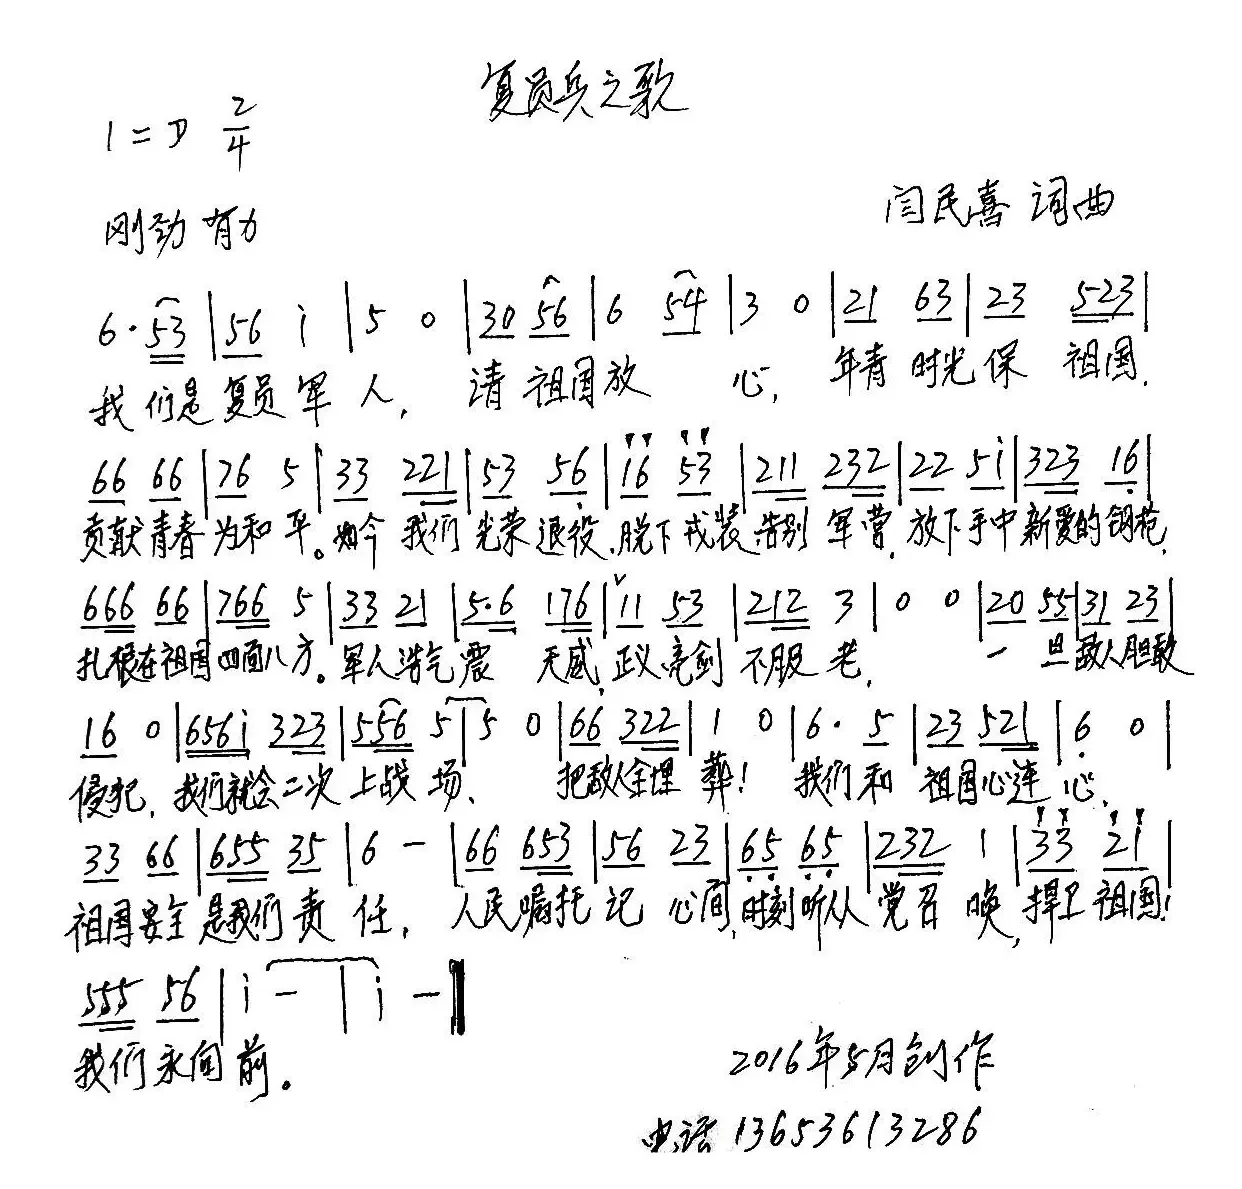 复员兵之歌
1=D 2/4
闫民喜 词曲
刚劲 有力
6· 53 | 56 i | 5 0 | 30 56 | 6 54 | 3 0 | 21 63 | 23 523 |
我们是复员军人, 请祖国放心, 年青时光保祖国,
66 66 | 76 5 | 33 221 | 53 56 | 16 53 | 211 232 | 22 5i | 323 16 |
贡献青春为和平。如今我们光荣退役,脱下戎装告别军营,放下手中新爱的钢枪,
666 66 | 766 5 | 33 21 | 5·6 176 | 11 53 | 212 3 | 0 0 | 20 55 | 31 23 |
扎根在祖国四面八方。军人浩气震天威,正义亮剑不服老, 一旦敌人胆敢
16 0 | 656i 323 | 556 5 | 5 0 | 66 322 | 1 0 | 6· 5 | 23 521 | 6 0 |
侵犯,我们就会二次上战场、 把敌人全埋葬! 我们和祖国心连心,
33 66 | 655 35 | 6 - | 66 653 | 56 23 | 65 65 | 232 1 | 33 21 |
祖国安全是我们责任, 人民嘱托记心间,时刻听从党召唤,捍卫祖国!
555 56 | i - | i - ‖
我们永向前。
2016年5月创作
电话 13653613286